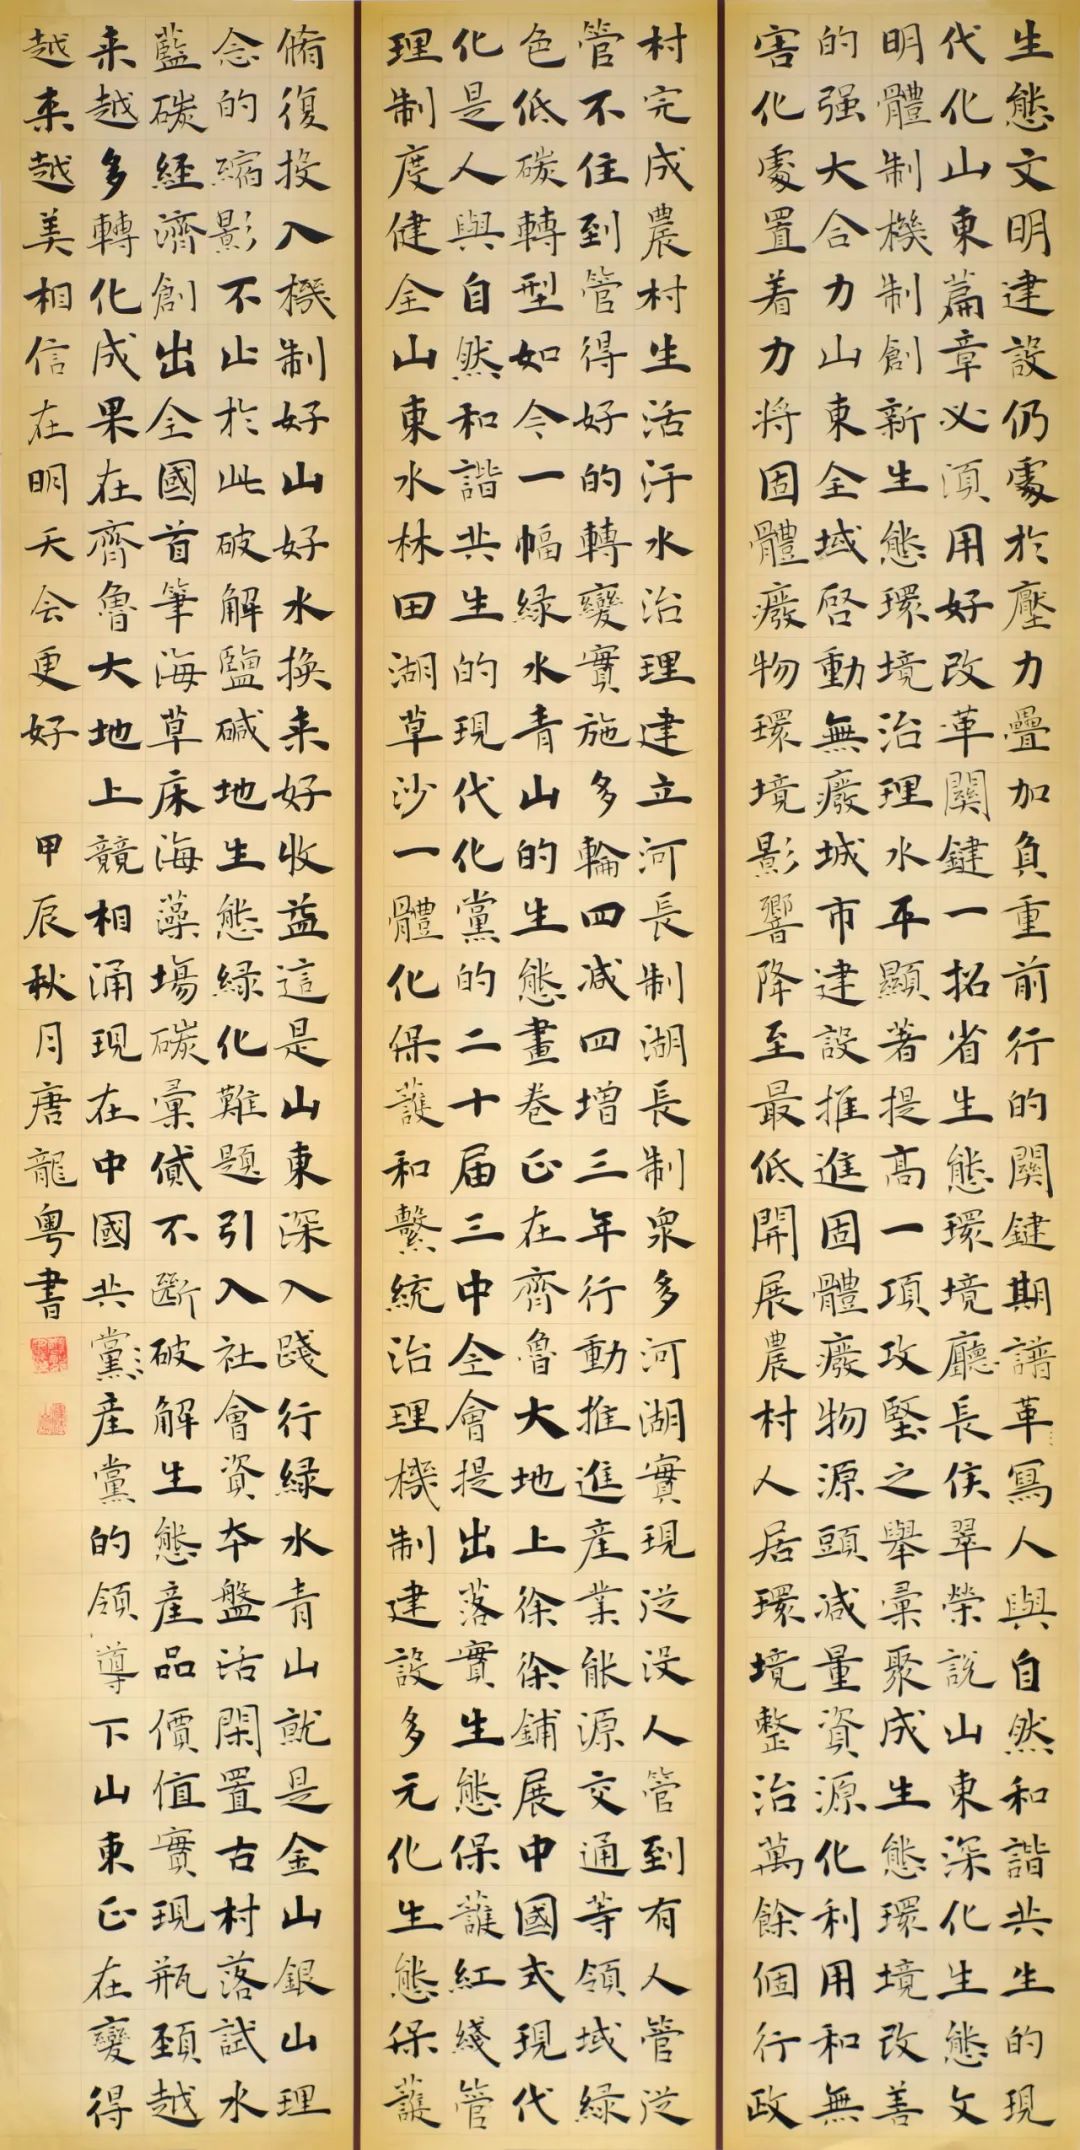 生態文明建設仍處於壓力疊加負重前行的關鍵期譜革寫人與自然和諧共生的現
代化山東篇章必須用好改革關鍵一招省生態環境廳長侯翠榮説山東深化生態文
明體制機制創新生態環境治理水平顯著提高一項項攻堅之舉彙聚成生態環境改善
的强大合力山東全域啓動無廢城市建設推進固體廢物源頭減量資源化利用和無
害化處置着力將固體廢物環境影響降至最低開展農村人居環境整治萬餘個行政
村完成農村生活汙水治理建立河長制湖長制衆多河湖實現從没人管到有人管從
管不住到管得好的轉變實施多輪四减四增三年行動推進産業能源交通等領域緑
色低碳轉型如今一幅緑水青山的生態畫卷正在齊魯大地上徐徐鋪展中國式現代
化是人與自然和諧共生的現代化黨的二十届三中全會提出落實生態保護紅綫管
理制度健全山東水林田湖草沙一體化保護和繫統治理機制建設多元化生態保護
脩復投入機制好山好水换来好收益這是山東深入踐行緑水青山就是金山銀山理
念的縮影不止於此破解鹽碱地生態緑化難題引入社會資本盤活閑置古村落試水
藍碳經濟創出全國首筆海草床海藻場碳彙貸不斷破解生態産品價值實現瓶頸越
来越多轉化成果在齊魯大地上競相涌現在中國共黨産黨的領導下山東正在變得
越来越美相信在明天会更好 甲辰秋月唐龍粤書